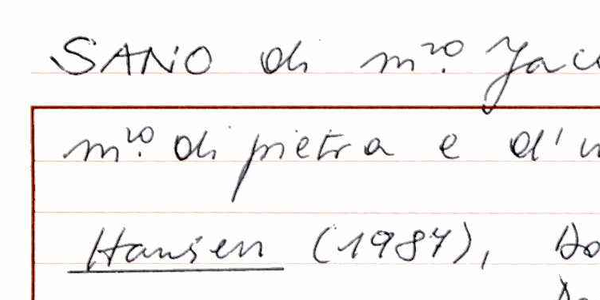 SANO di m.ro Jac
m.ro di pietra e d'u
Hansen (1987), Do